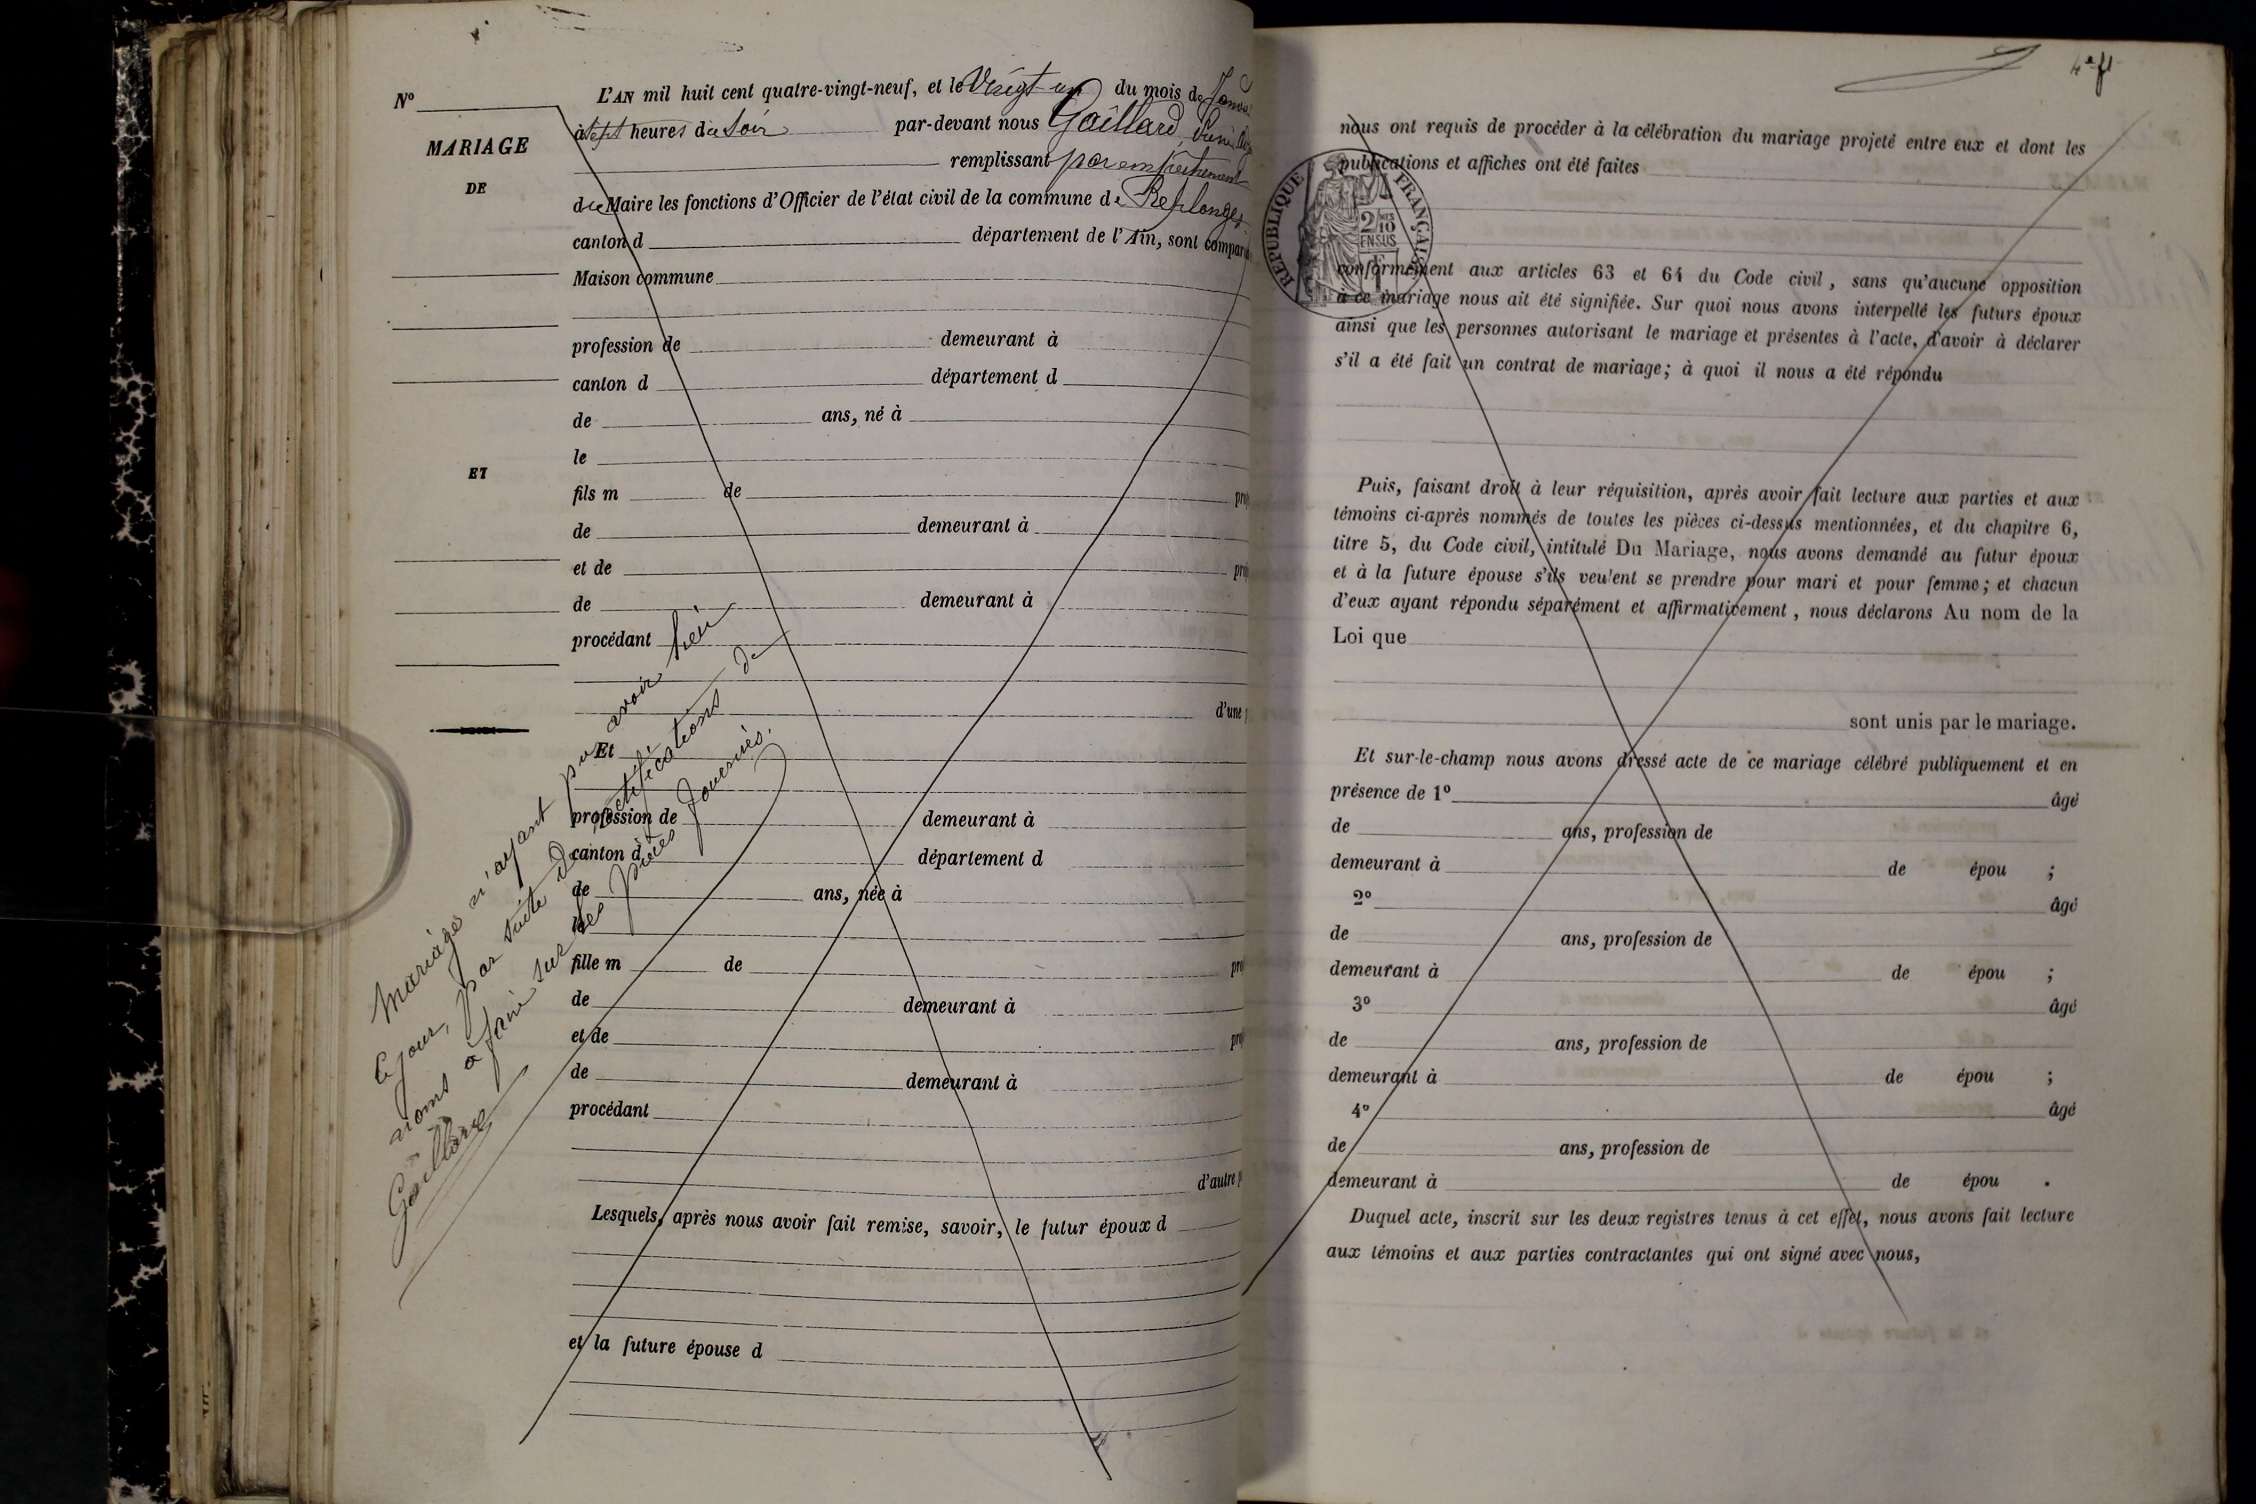 Nº
MARIAGE
DE
ET
L'AN mil huit cent quatre-vingt-neuf, et le Vingt-un du mois de Janv
à sept heures du Soir par-devant nous Gaillard
remplissant par empêchement
du Maire les fonctions d'Officier de l'état civil de la commune de Replonges
canton d département de l'Ain, sont compar
Maison commune
profession de demeurant à
canton d département d
de ans, né à
le
fils m de pro
de demeurant à
et de pro
de demeurant à
procédant
d'une p
Et
profession de demeurant à
canton d département d
de ans, née à
le
fille m de pro
de demeurant à
et de pro
de demeurant à
procédant
d'autre p
Lesquels, après nous avoir fait remise, savoir, le futur époux d
et la future épouse d
Mariage n'ayant pu avoir lieu
ce jour, par suite de rectifications de
noms à faire sur les pièces fournies.
Gaillard
4e ft
nous ont requis de procéder à la célébration du mariage projeté entre eux et dont les
publications et affiches ont été faites
RÉPUBLIQUE FRANÇAISE
2/10
EN SUS
conformément aux articles 63 et 64 du Code civil, sans qu'aucune opposition
à ce mariage nous ait été signifiée. Sur quoi nous avons interpellé les futurs époux
ainsi que les personnes autorisant le mariage et présentes à l'acte, d'avoir à déclarer
s'il a été fait un contrat de mariage; à quoi il nous a été répondu
Puis, faisant droit à leur réquisition, après avoir fait lecture aux parties et aux
témoins ci-après nommés de toutes les pièces ci-dessus mentionnées, et du chapitre 6,
titre 5, du Code civil, intitulé Du Mariage, nous avons demandé au futur époux
et à la future épouse s'ils veulent se prendre pour mari et pour femme; et chacun
d'eux ayant répondu séparément et affirmativement, nous déclarons Au nom de la
Loi que
sont unis par le mariage.
Et sur-le-champ nous avons dressé acte de ce mariage célébré publiquement et en
présence de 1º âgé
de ans, profession de
demeurant à de épou ;
2º âgé
de ans, profession de
demeurant à de épou ;
3º âgé
de ans, profession de
demeurant à de épou ;
4º âgé
de ans, profession de
demeurant à de épou .
Duquel acte, inscrit sur les deux registres tenus à cet effet, nous avons fait lecture
aux témoins et aux parties contractantes qui ont signé avec nous,